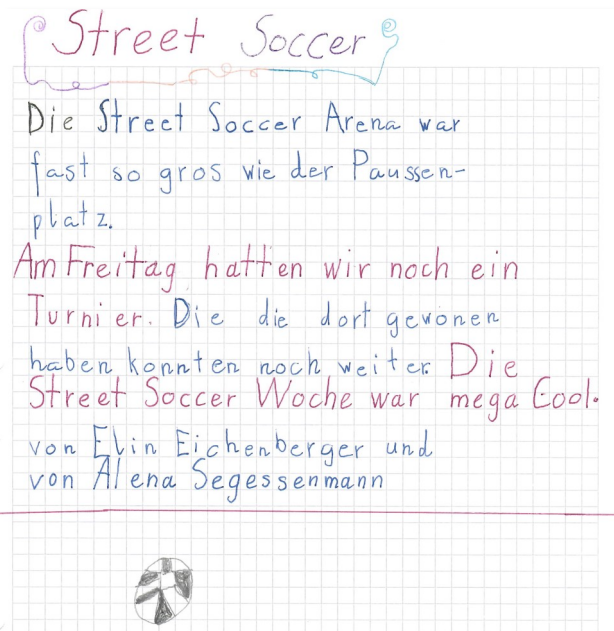 Street Soccer
Die Street Soccer Arena war
fast so gros wie der Paussen-
platz.
Am Freitag hatten wir noch ein
Turnier. Die die dort gewonen
haben konnten noch weiter. Die
Street Soccer Woche war mega Cool.
von Elin Eichenberger und
von Alena Segessenmann